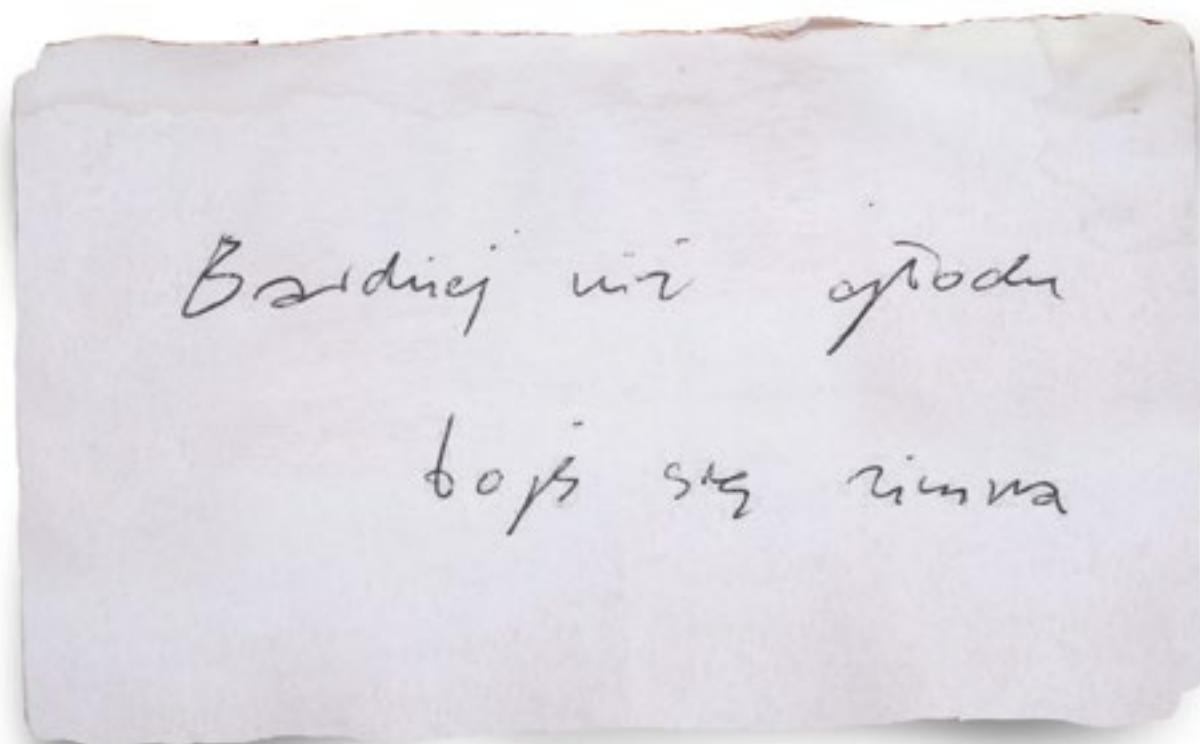 Bardziej niż głodu
boję się zimna